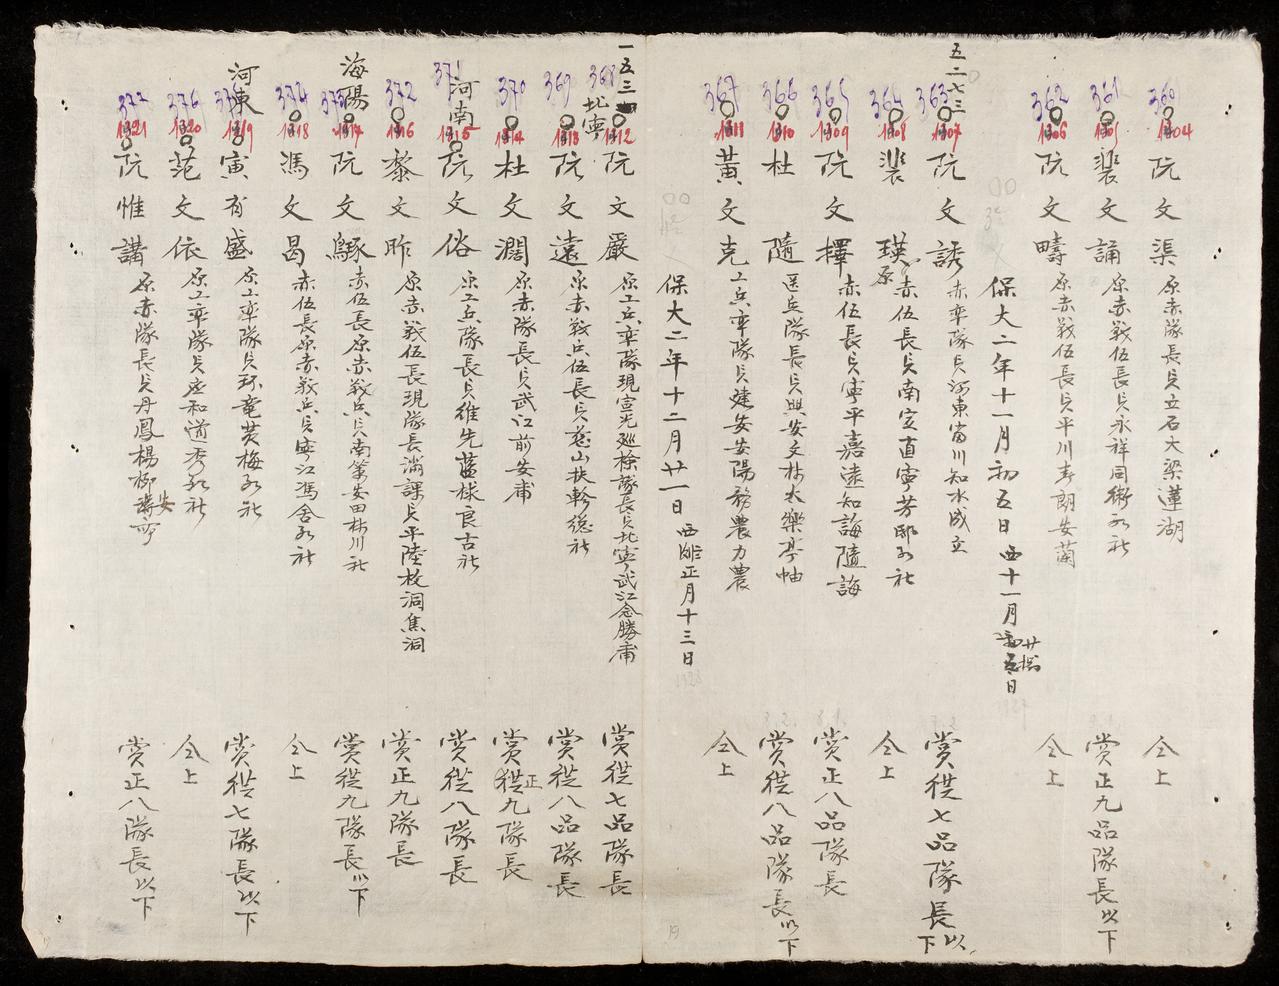 360
1304
阮文渠 原赤隊長貝立石大梁蓮湖 仝上
361
1305
裴文誦 原赤戰伍長貝永祥同衛 社 賞正九品隊長以下
362
1306
阮文疇 原赤戰伍長貝平川 朗安蘭 仝上
保大二年十一月初五日 西十一月 日
五二七三
363
1307
阮文誘 赤率隊貝河東富川知水成立 賞從七品隊長以下
364
1308
裴瑛 原赤伍長貝南 直寧芳 社 仝上
365
1309
阮文擇 赤伍長貝寧平嘉遠知誨隨誨 賞正八品隊長
366
1310
杜隨 送兵隊長貝興安文林 樂亭 賞從八品隊長以下
367
1311
黃文克 工兵率隊貝建安安陽務農力農 仝上
保大二年十二月廿一日 西 正月十三日
一五三
368
北寧
1312
阮文嚴 原工兵率隊現宣光巡檢隊長貝北寧武江念勝甫 賞從七品隊長
369
1313
阮文遠 原赤戰兵伍長貝慈山扶軫 社 賞從八品隊長
370
1314
杜文濶 原赤隊長貝武江前安甫 賞從正九隊長
371
河南
1315
阮文俗 原工兵隊長貝維先 良古社 賞從八隊長
372
1316
黎文昨 原赤戰伍長現隊長 課貝平陸枚洞焦洞 賞正九隊長
海陽
373
1317
阮文 赤伍長原赤戰兵貝南策安田林川社 賞從九隊長以下
374
1318
馮文曷 赤伍長原赤戰兵貝寧江馮舍 社 仝上
河東
375
1319
寅有盛 原工率隊貝 黃梅 社 賞從七隊長以下
376
1320
范文依 原工率隊貝 和道秀 社 仝上
377
1321
阮惟講 原赤隊長貝丹鳳楊柳 安 賞正八隊長以下
19